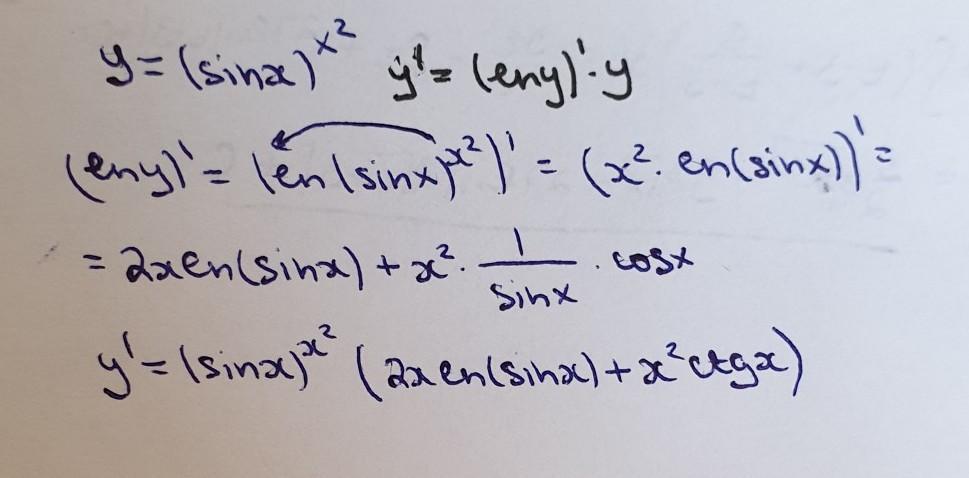 y = (sinx)^x² y' = (lny)'·y
(lny)' = (ln(sinx)^x²)' = (x²·ln(sinx))' =
= 2xln(sinx) + x²· 1/sinx · cosx
y' = (sinx)^x² (2xln(sinx) + x²ctgx)